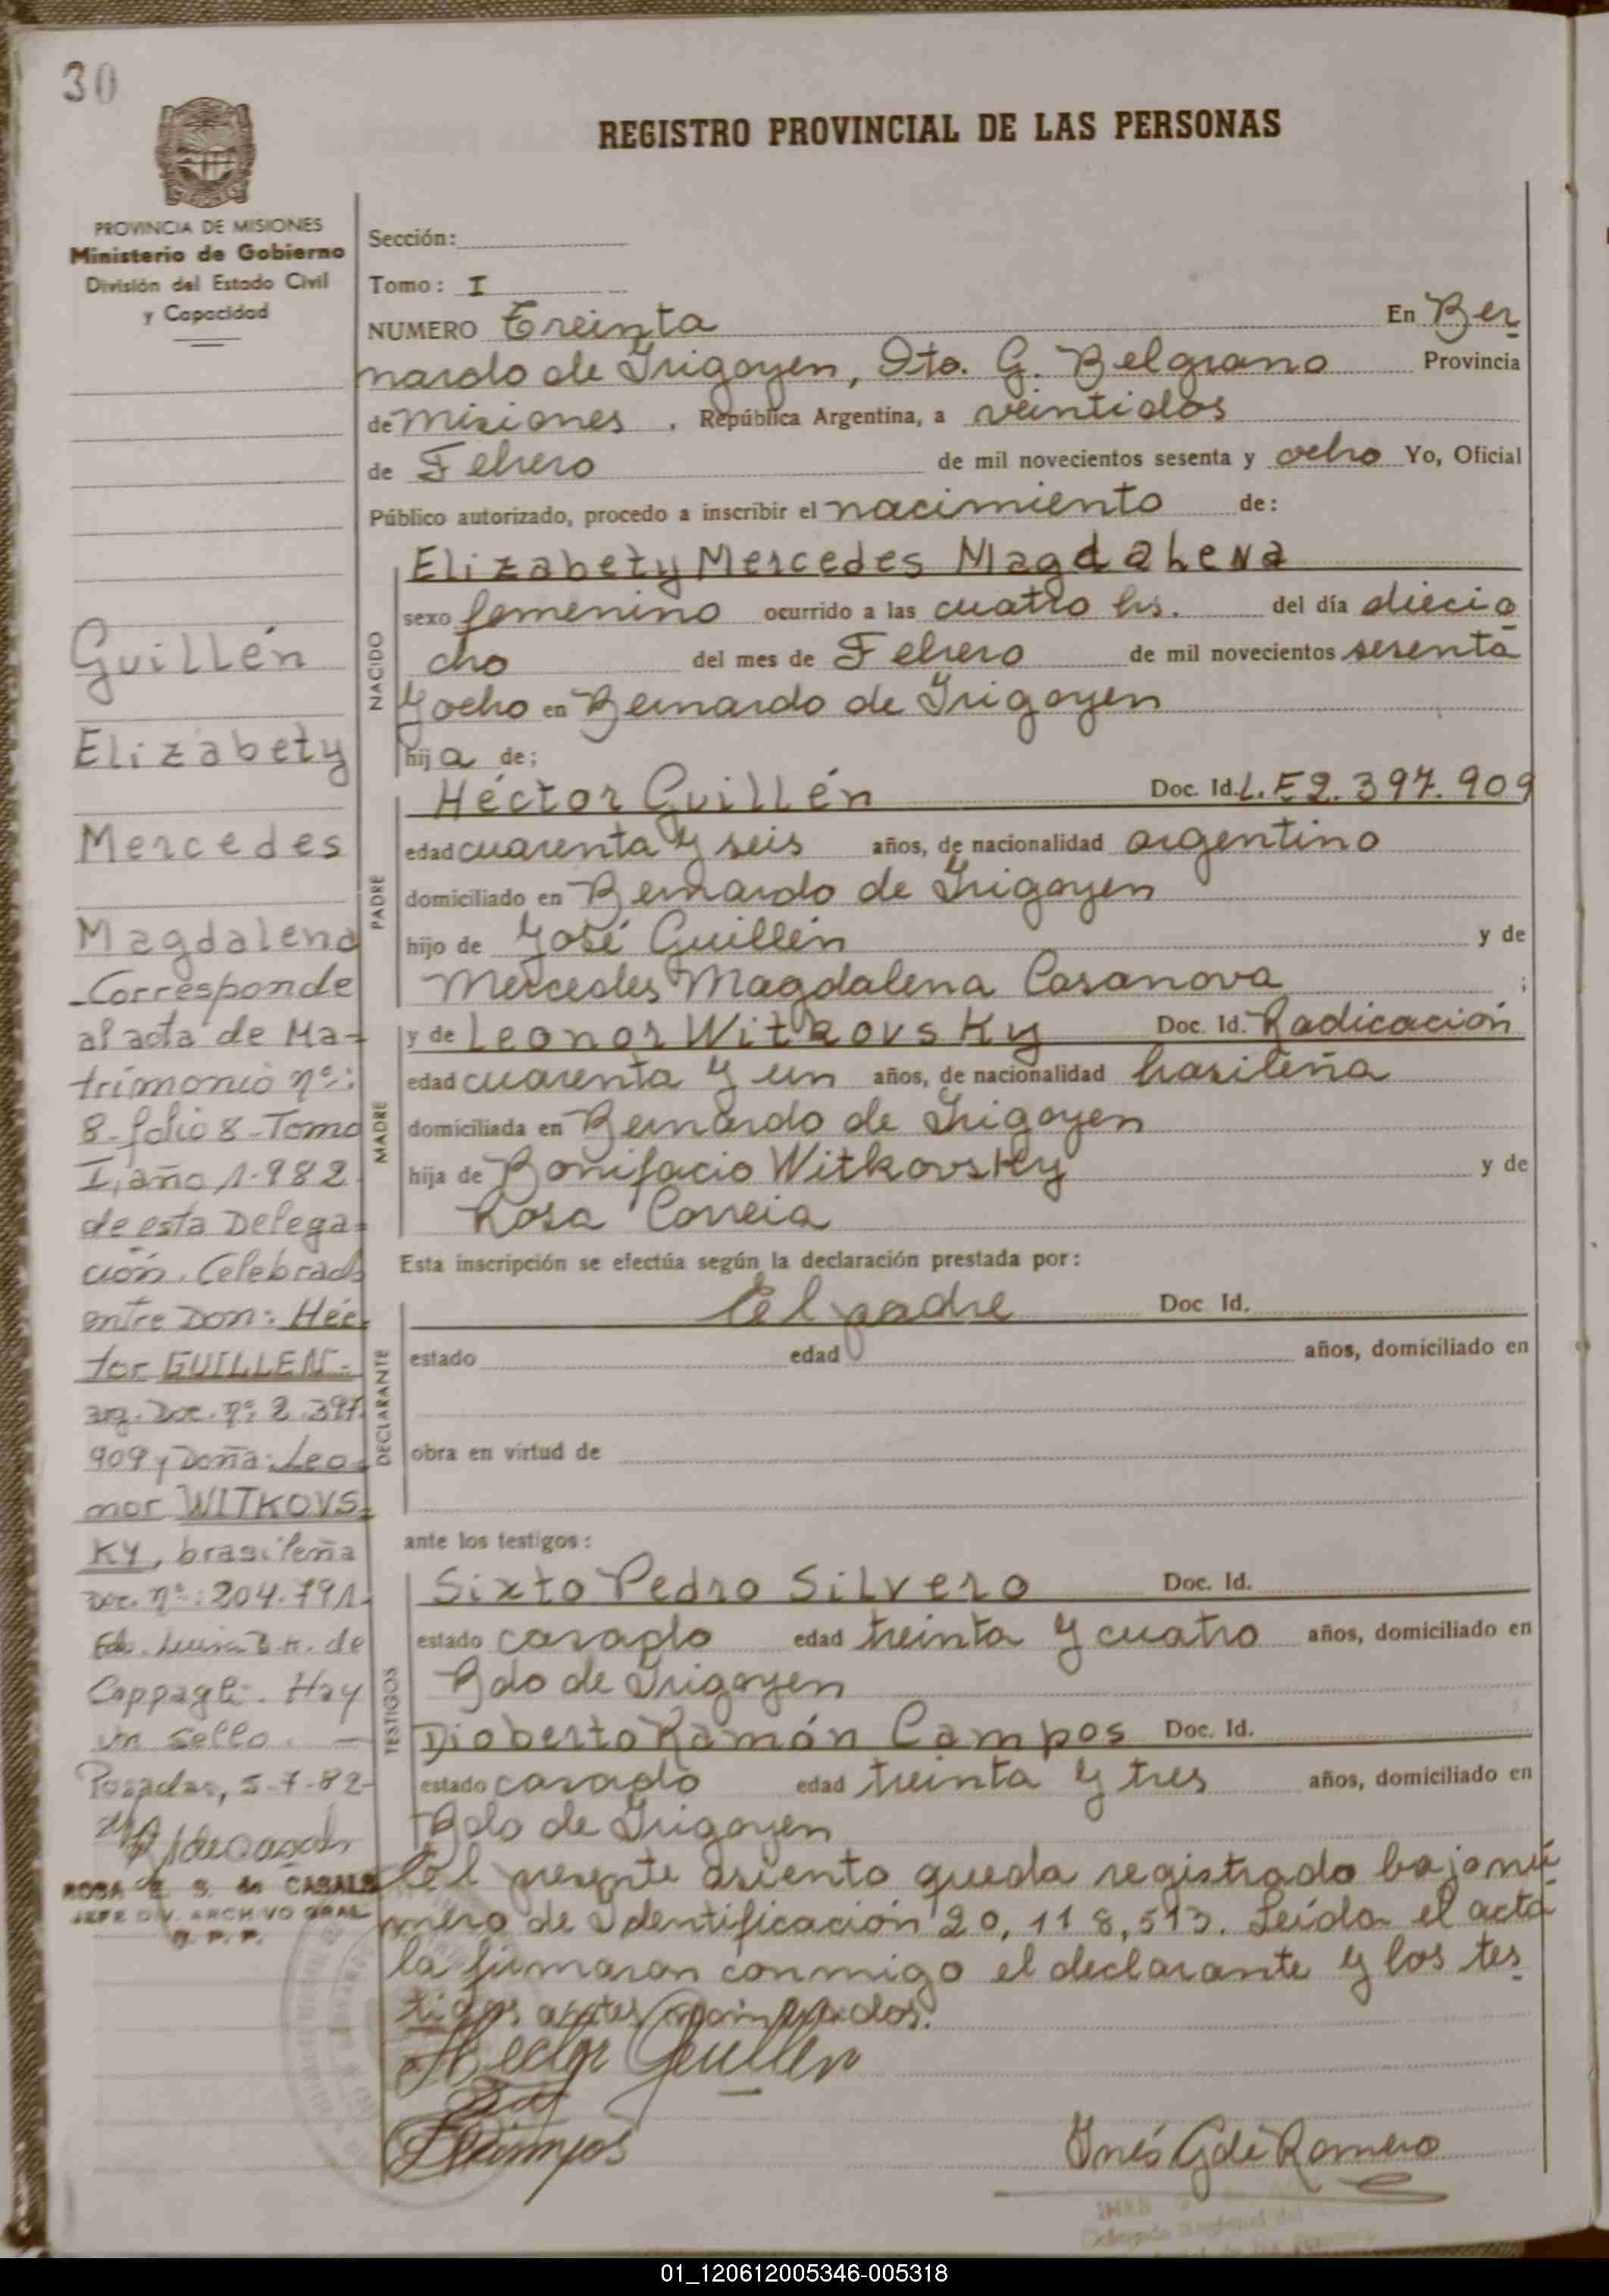 30
REGISTRO PROVINCIAL DE LAS PERSONAS
PROVINCIA DE MISIONES
Ministerio de Gobierno
División del Estado Civil
y Capacidad
Guillén
Elizabety
Mercedes
Magdalena
Corresponde
al acta de Ma-
trimonio nº:
8-folio 8-Tomo
I, año 1.982
de esta Delega-
ción. Celebrado
entre Don: Héc
tor GUILLEN-
arg. Doc. nº: 2.397.
909 y Doña: Leo-
nor WITKOVS-
KY, brasileña
Doc. nº: 204.791-
Fdo. Luisa B.K. de
Cappagli. Hay
un sello. —
Posadas, 5-7-82-
ROSA E. S. de CASALS
JEFE DIV. ARCHIVO GRAL
R. P. P.
Sección:
Tomo: I
NUMERO Treinta En Ber
nardo de Irigoyen, Dto. G. Belgrano Provincia
de misiones, República Argentina, a veintidos
de Febrero de mil novecientos sesenta y ocho Yo, Oficial
Público autorizado, procedo a inscribir el nacimiento de:
NACIDO
Elizabety Mercedes Magdalena
sexo femenino ocurrido a las cuatro hs. del día diecio
cho del mes de Febrero de mil novecientos sesenta
y ocho en Bernardo de Irigoyen
hija de;
PADRE
Héctor Guillén Doc. Id. L.E 2.397.909
edad cuarenta y seis años, de nacionalidad argentino
domiciliado en Bernardo de Irigoyen
hijo de José Guillén y de
Mercedes Magdalena Casanova ;
MADRE
y de Leonor Witkovsky Doc. Id. Radicación
edad cuarenta y un años, de nacionalidad brasileña
domiciliada en Bernardo de Irigoyen
hija de Bonifacio Witkovsky y de
Rosa Correia
Esta inscripción se efectúa según la declaración prestada por:
DECLARANTE
El padre Doc Id.
estado edad años, domiciliado en
obra en virtud de
ante los testigos:
TESTIGOS
Sixto Pedro Silvero Doc. Id.
estado casado edad treinta y cuatro años, domiciliado en
Bdo de Irigoyen
Dioberto Ramón Campos Doc. Id.
estado casado edad treinta y tres años, domiciliado en
Bdo de Irigoyen
El presente asiento queda registrado bajo nú
mero de Identificación 20,118,513. Leída el acta
la firmaron conmigo el declarante y los tes
tigos antes nombrados.
Hector Guillen
Campos
Inés G de Romero
01_120612005346-005318